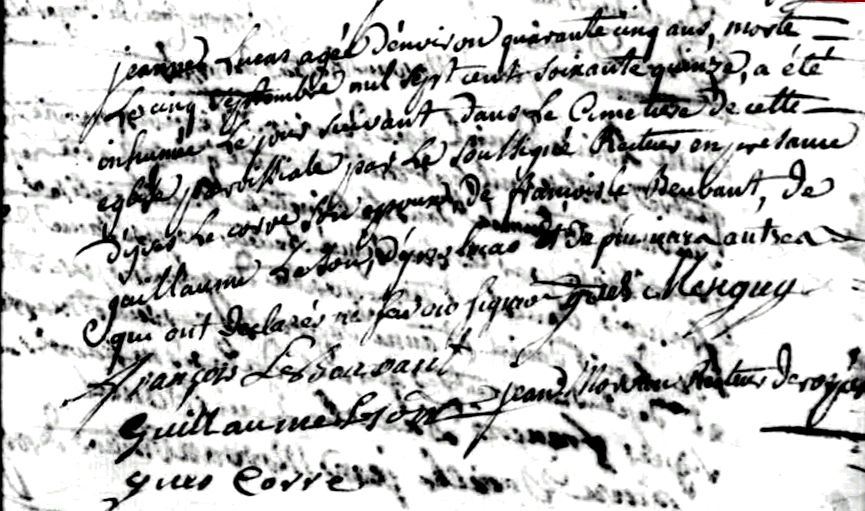 jeanne Lucas agée d'environ quarante cinq ans, morte
Le cinq septembre mil sept cents soixante quinze, a été
inhumée Le jour suivant dans Le Cimetiere de cette
eglise parroissiale par Le soussigné Recteur en presance
d'yves Le corre son epoux, de françois Le Beuvant, de
guillaume Le son, d'yves lucas et de plusieurs autres
qui ont declarés ne sçavoir signer
François Le
Guillaume Le
jean Morvan Recteur de
yves Corre